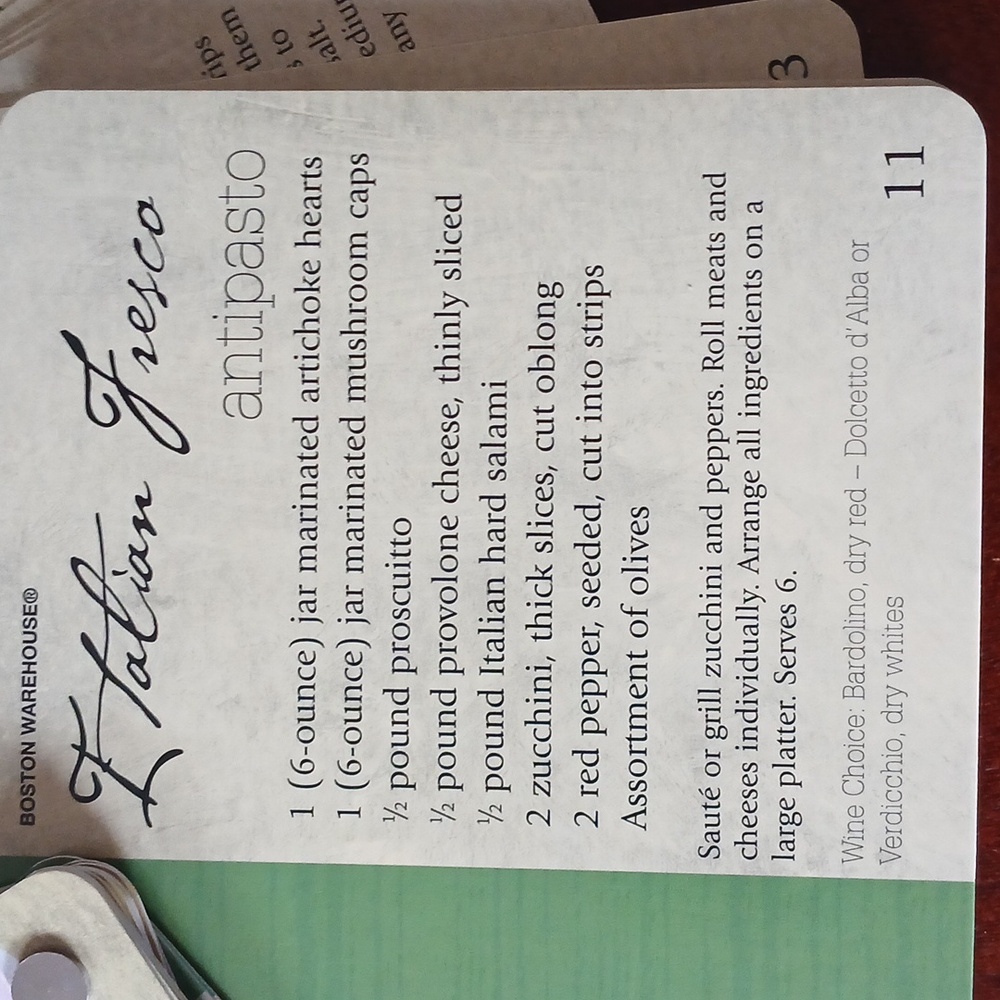 rips
them
s to
salt.
any
3
BOSTON WAREHOUSE®
Italian Fresco
antipasto
1 (6-ounce) jar marinated artichoke hearts
1 (6-ounce) jar marinated mushroom caps
½ pound proscuitto
½ pound provolone cheese, thinly sliced
½ pound Italian hard salami
2 zucchini, thick slices, cut oblong
2 red pepper, seeded, cut into strips
Assortment of olives
Sauté or grill zucchini and peppers. Roll meats and
cheeses individually. Arrange all ingredients on a
large platter. Serves 6.
Wine Choice: Bardolino, dry red – Dolcetto d'Alba or
Verdicchio, dry whites
11